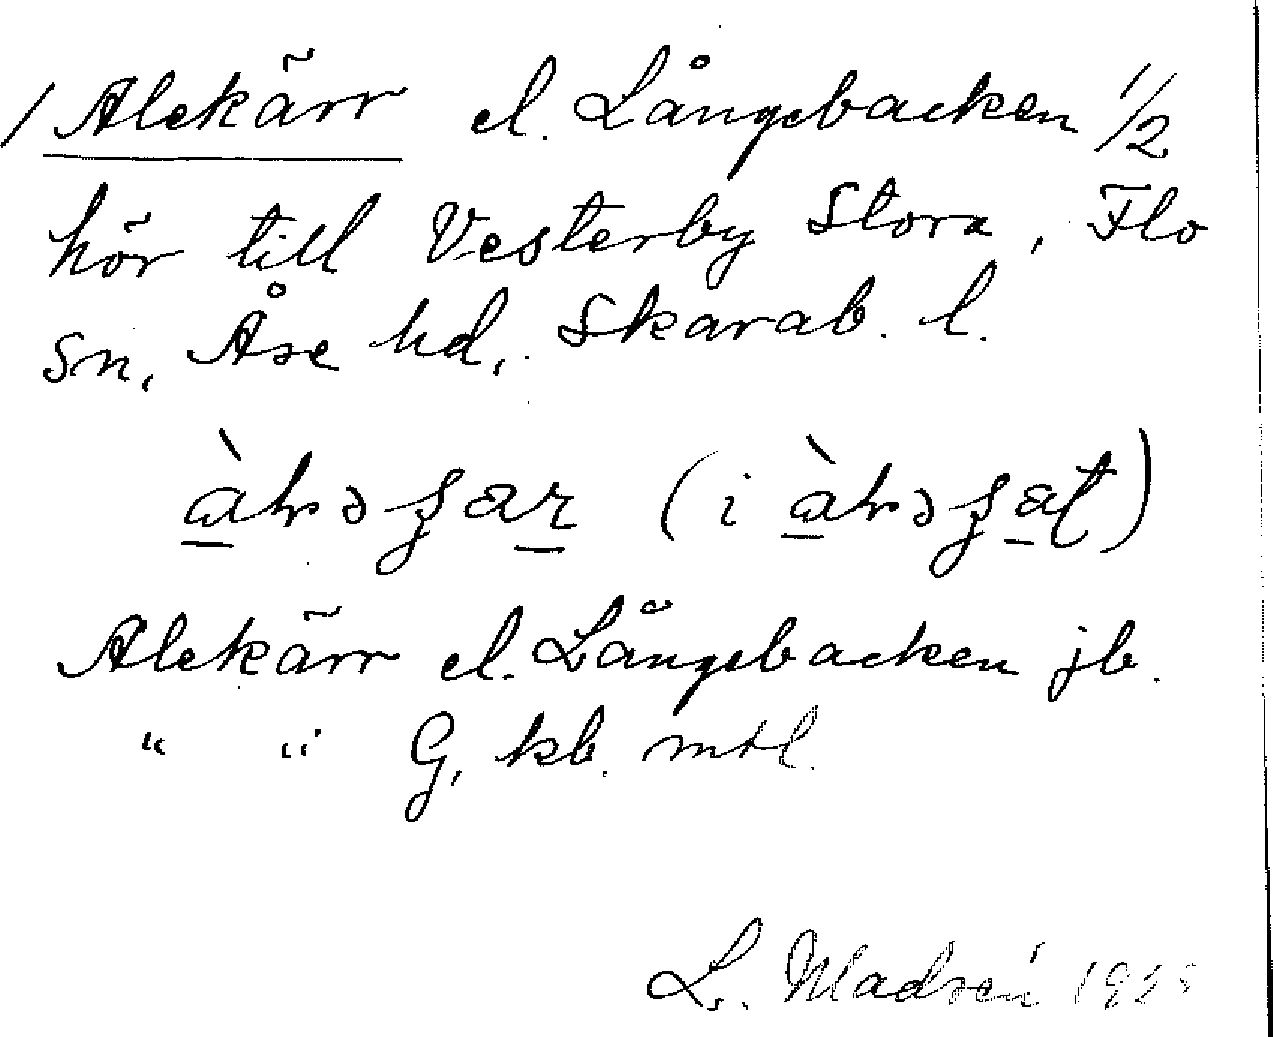 / Alekärr el. Långebacken 1/2
hör till Vesterby Stora, Flo
sn, Åse hd, Skarab. l.
(i
Alekärr el. Långebacken jb.
“ “ G, kb. mtl.
L. Madsén